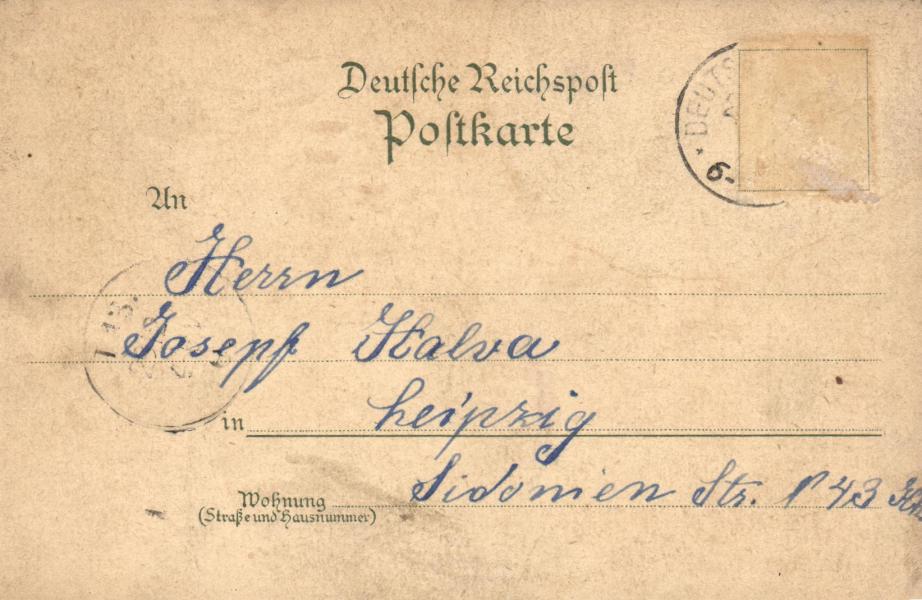 Deutsche Reichspost
Postkarte
DEUTS
6-
An
Herrn
Josepf Halva
in Leipzig
Sidonien Str. 43
Wohnung
(Straße und Hausnummer)